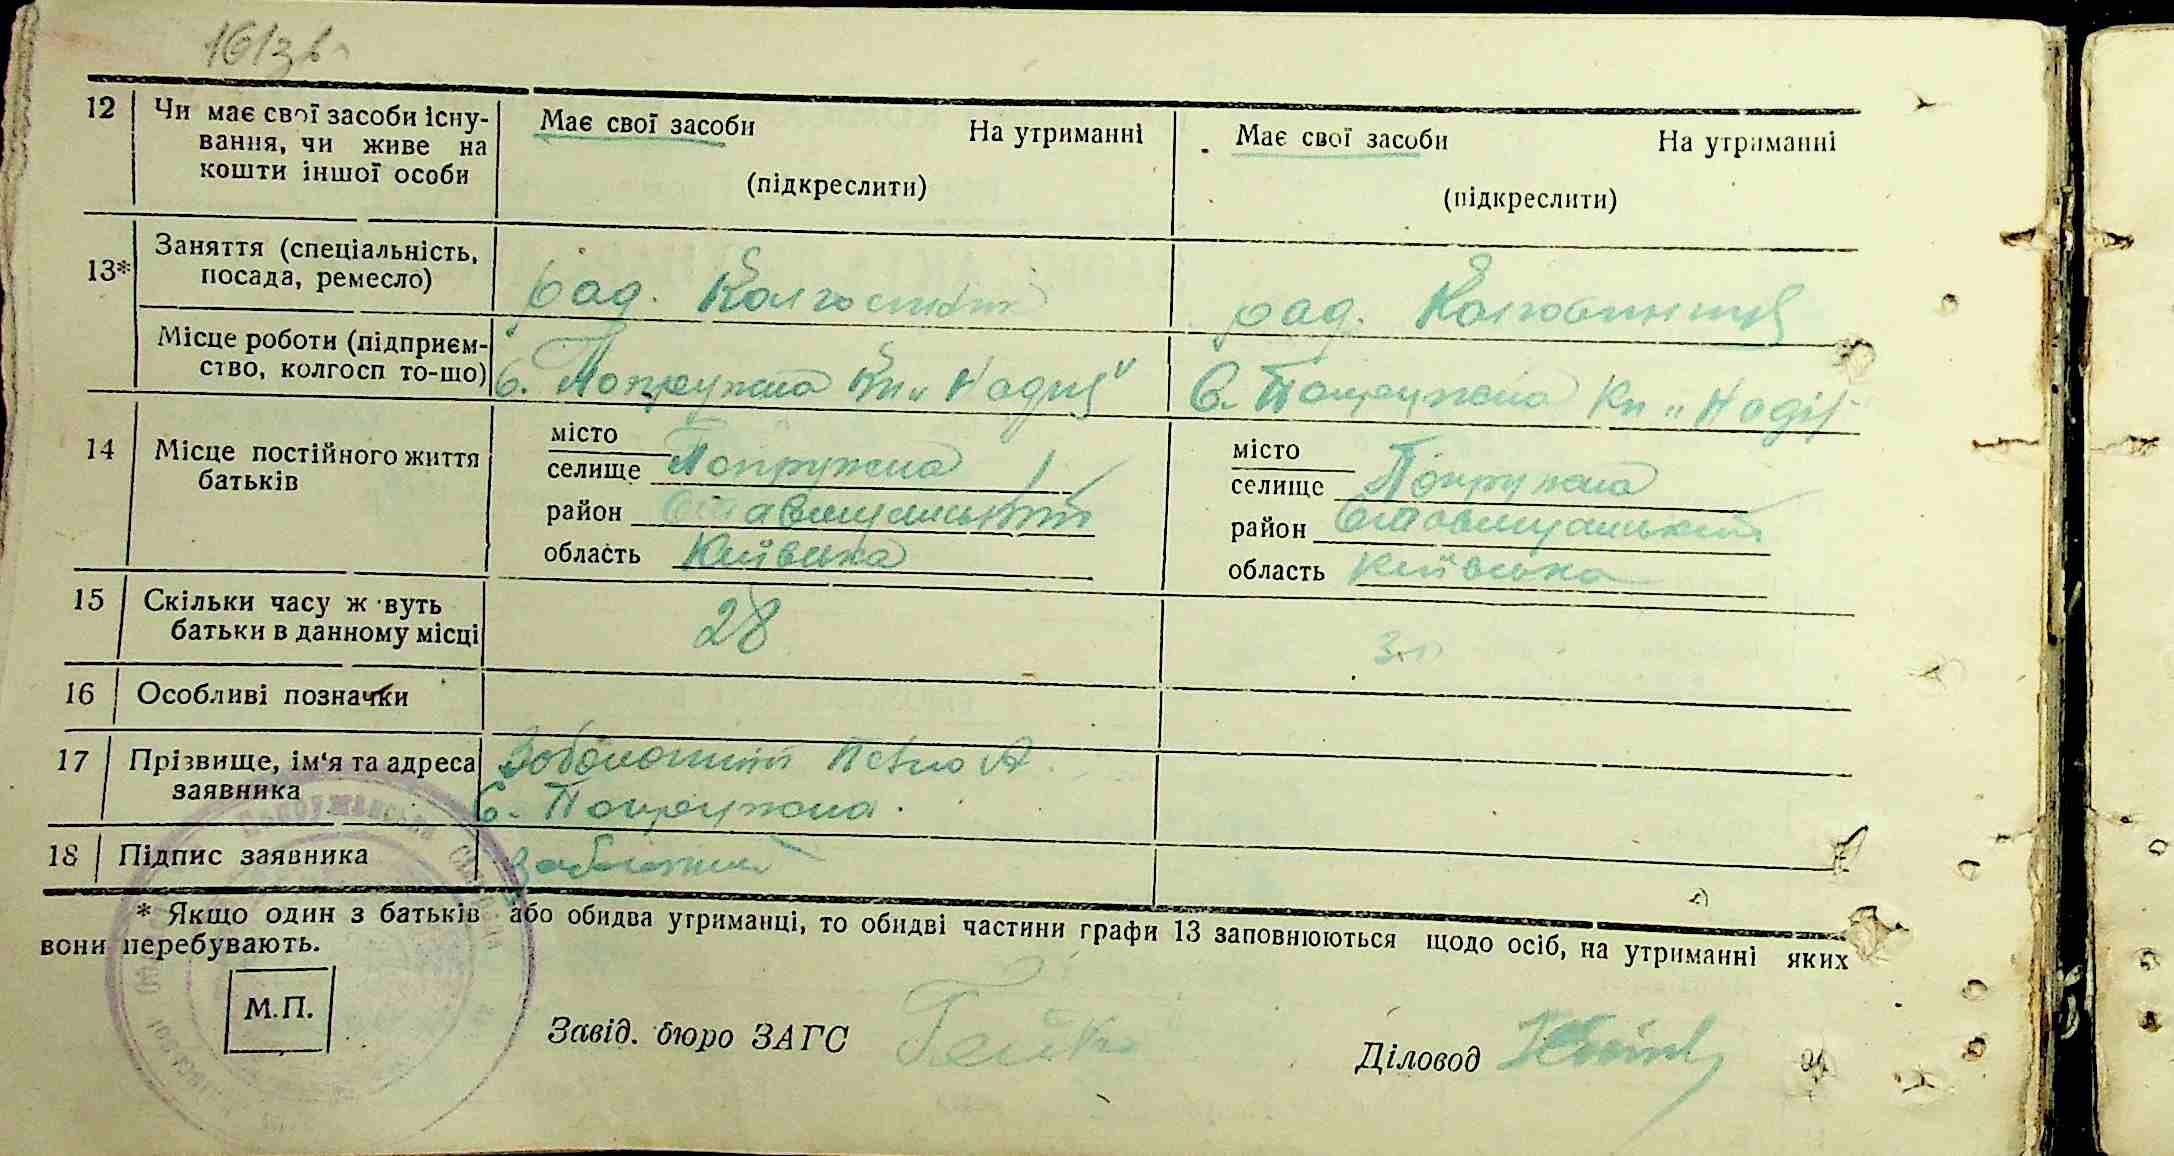 16/зв
12 Чи має свої засоби існу-
вання, чи живе на
кошти іншої особи
Має свої засоби На утриманні
(підкреслити)
Має свої засоби На утриманні
(підкреслити)
13* Заняття (спеціальність,
посада, ремесло)
рад. рад.
Місце роботи (підприєм-
ство, колгосп то-що)
с. Попружна Кп „Надия"
с. Попружна Кп „Надія
14 Місце постійного життя
батьків
місто
селище Попружна
район Ставищанський
область Київська
місто
селище Попружна
район Ставищанський
область Київська
15 Скільки часу ж вуть
батьки в данному місці
28
16 Особливі позначки
17 Прізвище, ім'я та адреса
заявника
Заболотний А
с. Попружна.
18 Підпис заявника Заболотний
* Якщо один з батьків або обидва утриманці, то обидві частини графи 13 заповнюються щодо осіб, на утриманні яких
вони перебувають.
М.П.
Завід. бюро ЗАГС
Діловод